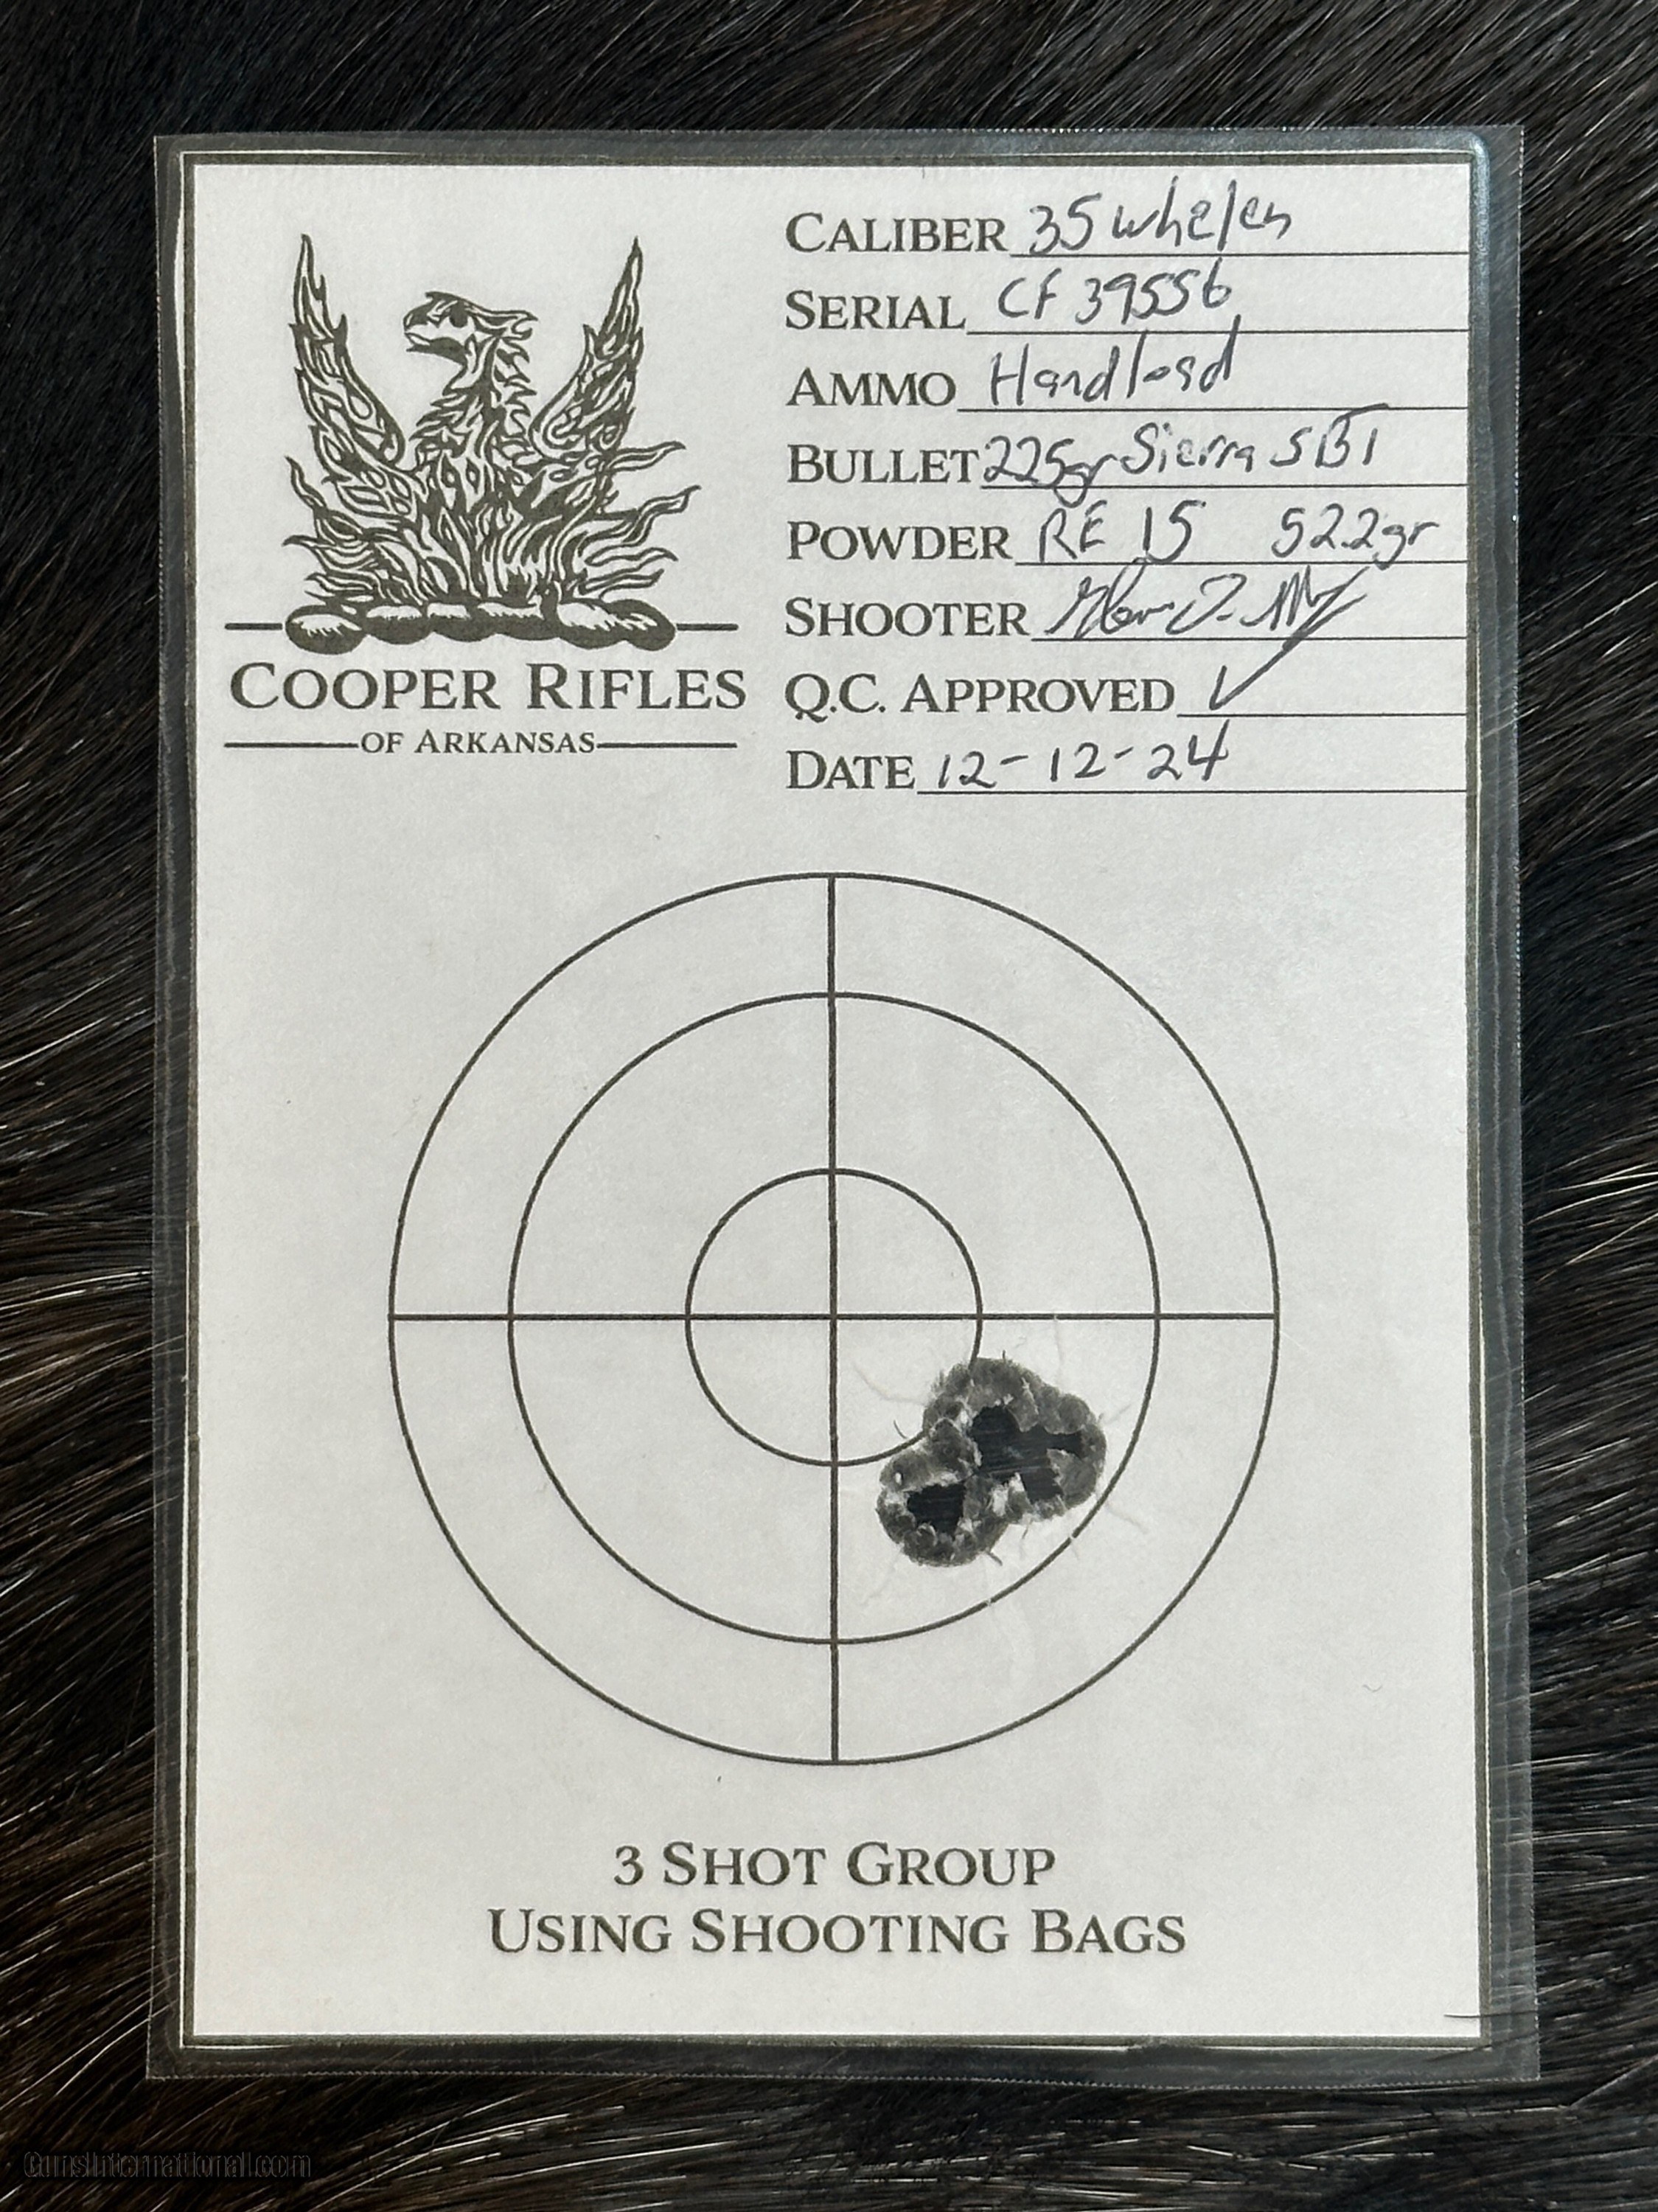 CALIBER 35 Whelen
SERIAL CF 39556
AMMO Handload
BULLET 225gr Sierra SBT
POWDER RE 15 52.2gr
SHOOTER
Q.C. APPROVED ✓
DATE 12-12-24
COOPER RIFLES
OF ARKANSAS
3 SHOT GROUP
USING SHOOTING BAGS
GunsInternational.com